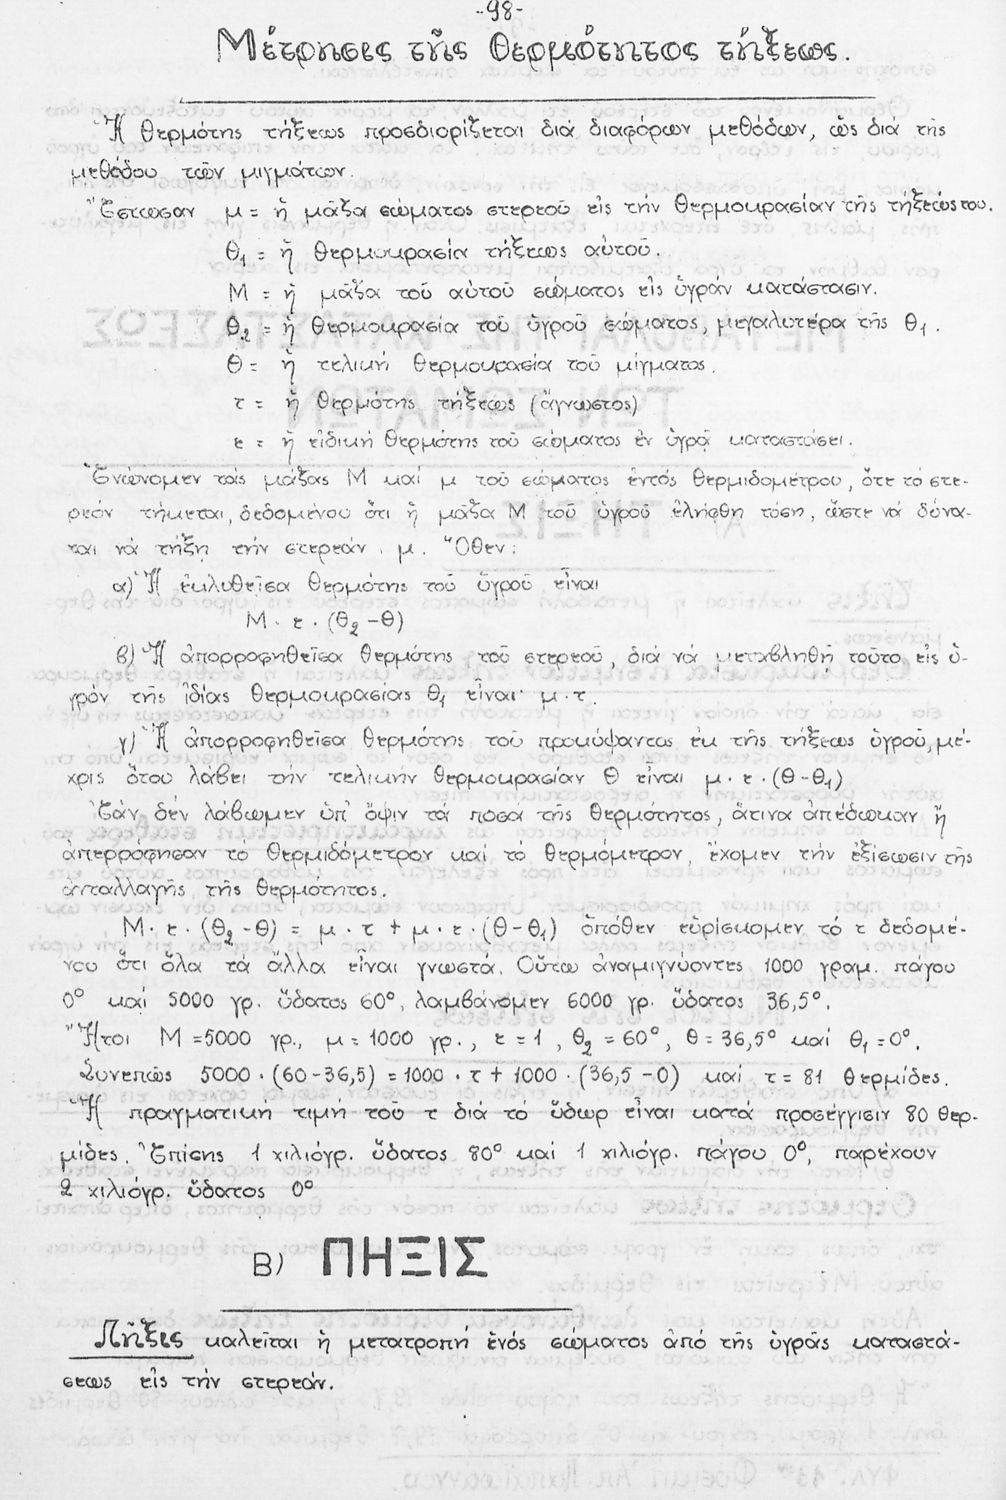 -98-
Μέτρησις τῆς θερμότητος τήξεως.
Ἡ θερμότης τήξεως προσδιορίζεται διά διαφόρων μεθόδων, ὡς διά τῆς
μεθόδου τῶν μιγμάτων.
Ἔστωσαν μ = ἡ μᾶζα σώματος στερεοῦ εἰς τήν θερμοκρασίαν τῆς τήξεώς του.
θ₁ = ἡ θερμοκρασία τήξεως αὐτοῦ.
Μ = ἡ μᾶζα τοῦ αὐτοῦ σώματος εἰς ὑγράν κατάστασιν.
θ₂ = ἡ θερμοκρασία τοῦ ὑγροῦ σώματος, μεγαλυτέρα τῆς θ₁.
Θ = ἡ τελική θερμοκρασία τοῦ μίγματος.
τ = ἡ θερμότης τήξεως (ἄγνωστος)
ε = ἡ εἰδική θερμότης τοῦ σώματος ἐν ὑγρᾷ καταστάσει.
Ἑνώνομεν τάς μάζας Μ καί μ τοῦ σώματος ἐντός θερμιδομέτρου, ὅτε τό στε-
ρεόν τήκεται, δεδομένου ὅτι ἡ μᾶζα Μ τοῦ ὑγροῦ ἐλήφθη τόση, ὥστε νά δύνα-
ται νά τήξῃ τήν στερεάν. μ. Ὅθεν:
α) Ἡ ἐκλυθεῖσα θερμότης τοῦ ὑγροῦ εἶναι
Μ · ε · (θ₂ - Θ)
β) Ἡ ἀπορροφηθεῖσα θερμότης τοῦ στερεοῦ, διά νά μεταβληθῇ τοῦτο εἰς ὑ-
γρόν τῆς ἰδίας θερμοκρασίας θ₁ εἶναι μ · τ.
γ) Ἡ ἀπορροφηθεῖσα θερμότης τοῦ προκύψαντος ἐκ τῆς τήξεως ὑγροῦ, μέ-
χρις ὅτου λάβει τήν τελικήν θερμοκρασίαν Θ εἶναι μ · ε · (Θ - θ₁)
Ἐάν δέν λάβωμεν ὑπ' ὄψιν τά ποσα τῆς θερμότητος, ἅτινα ἀπέδωκαν ἤ
ἀπερρόφησαν τό θερμιδόμετρον καί τό θερμόμετρον, ἔχομεν τήν ἐξίσωσιν τῆς
ἀνταλλαγῆς τῆς θερμότητος.
Μ · ε · (θ₂ - Θ) = μ · τ + μ · ε · (Θ - θ₁) ὁπόθεν εὑρίσκομεν τό τ δεδομέ-
νου ὅτι ὅλα τά ἄλλα εἶναι γνωστά. Οὕτω ἀναμιγνύοντες 1000 γραμ. πάγου
0° καί 5000 γρ. ὕδατος 60°, λαμβάνομεν 6000 γρ. ὕδατος 36,5°.
Ἤτοι Μ = 5000 γρ., μ = 1000 γρ., ε = 1, θ₂ = 60°, θ = 36,5° καί θ₁ = 0°.
Συνεπῶς 5000 · (60 - 36,5) = 1000 · τ + 1000 · (36,5 - 0) καί τ = 81 θερμίδες.
Ἡ πραγματική τιμή τοῦ τ διά τό ὕδωρ εἶναι κατά προσέγγισιν 80 θερ-
μίδες. Ἐπίσης 1 χιλιόγρ. ὕδατος 80° καί 1 χιλιόγρ. πάγου 0°, παρέχουν
2 χιλιόγρ. ὕδατος 0°
Β) ΠΗΞΙΣ
Πῆξις καλεῖται ἡ μετατροπή ἑνός σώματος ἀπό τῆς ὑγρᾶς καταστά-
σεως εἰς τήν στερεάν.